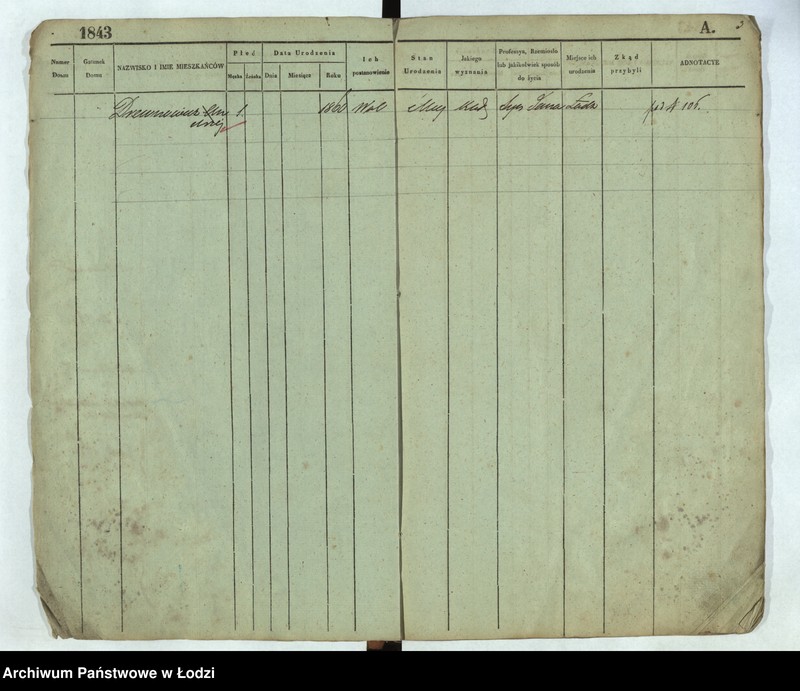 1843
A.
3
Numer Domu
Gatunek Domu
NAZWISKO I IMIE MIESZKAŃCÓW
Płeć
Męska
Żeńska
Data Urodzenia
Dnia
Miesiąca
Roku
Ich postanowienie
Stan Urodzenia
Jakiego wyznania
Professya, Rzemiosło lub jakikolwiek sposób do życia
Miejsce ich urodzenia
Zkąd przybyli
ADNOTACYE
1. 1860 Wol Jana Łódź pod N 106.
Archiwum Państwowe w Łodzi